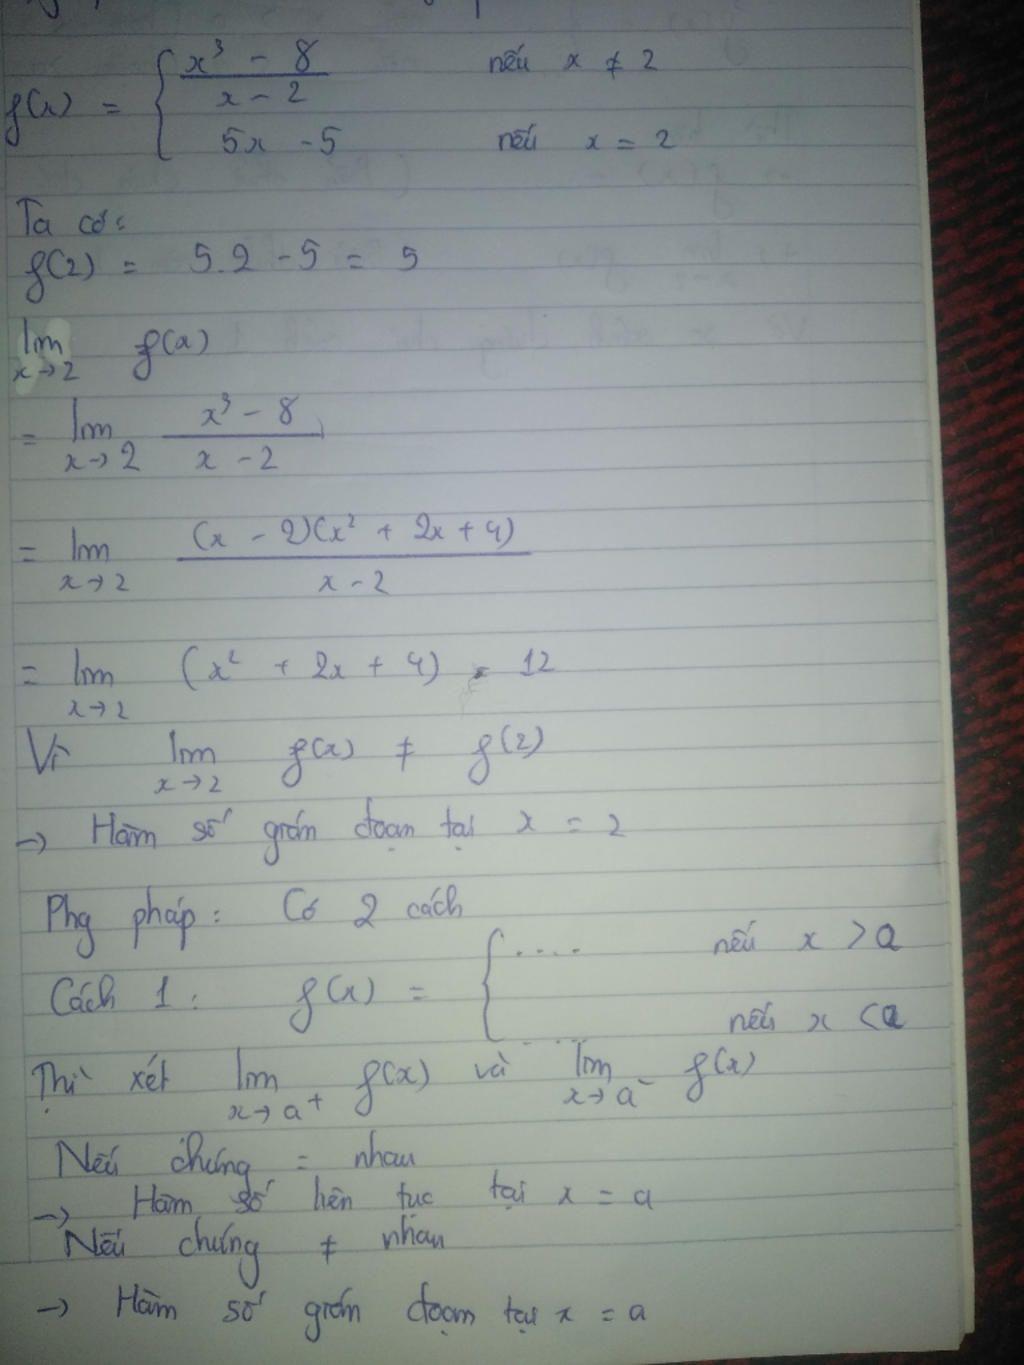 f(x) = { x³ - 8 / x - 2 nếu x ≠ 2
5x - 5 nếu x = 2
Ta có:
f(2) = 5.2 - 5 = 5
lim x→2 f(x)
= lim x→2 x³ - 8 / x - 2
= lim x→2 (x - 2)(x² + 2x + 4) / x - 2
= lim x→2 (x² + 2x + 4) = 12
Vì lim x→2 f(x) ≠ f(2)
→ Hàm số gián đoạn tại x = 2
Phg pháp: Có 2 cách
Cách 1: f(x) = { .... nếu x > a
.... nếu x < a
Thì xét lim x→a⁺ f(x) và lim x→a⁻ f(x)
Nếu chúng = nhau
→ Hàm số liên tục tại x = a
Nếu chúng ≠ nhau
→ Hàm số gián đoạn tại x = a